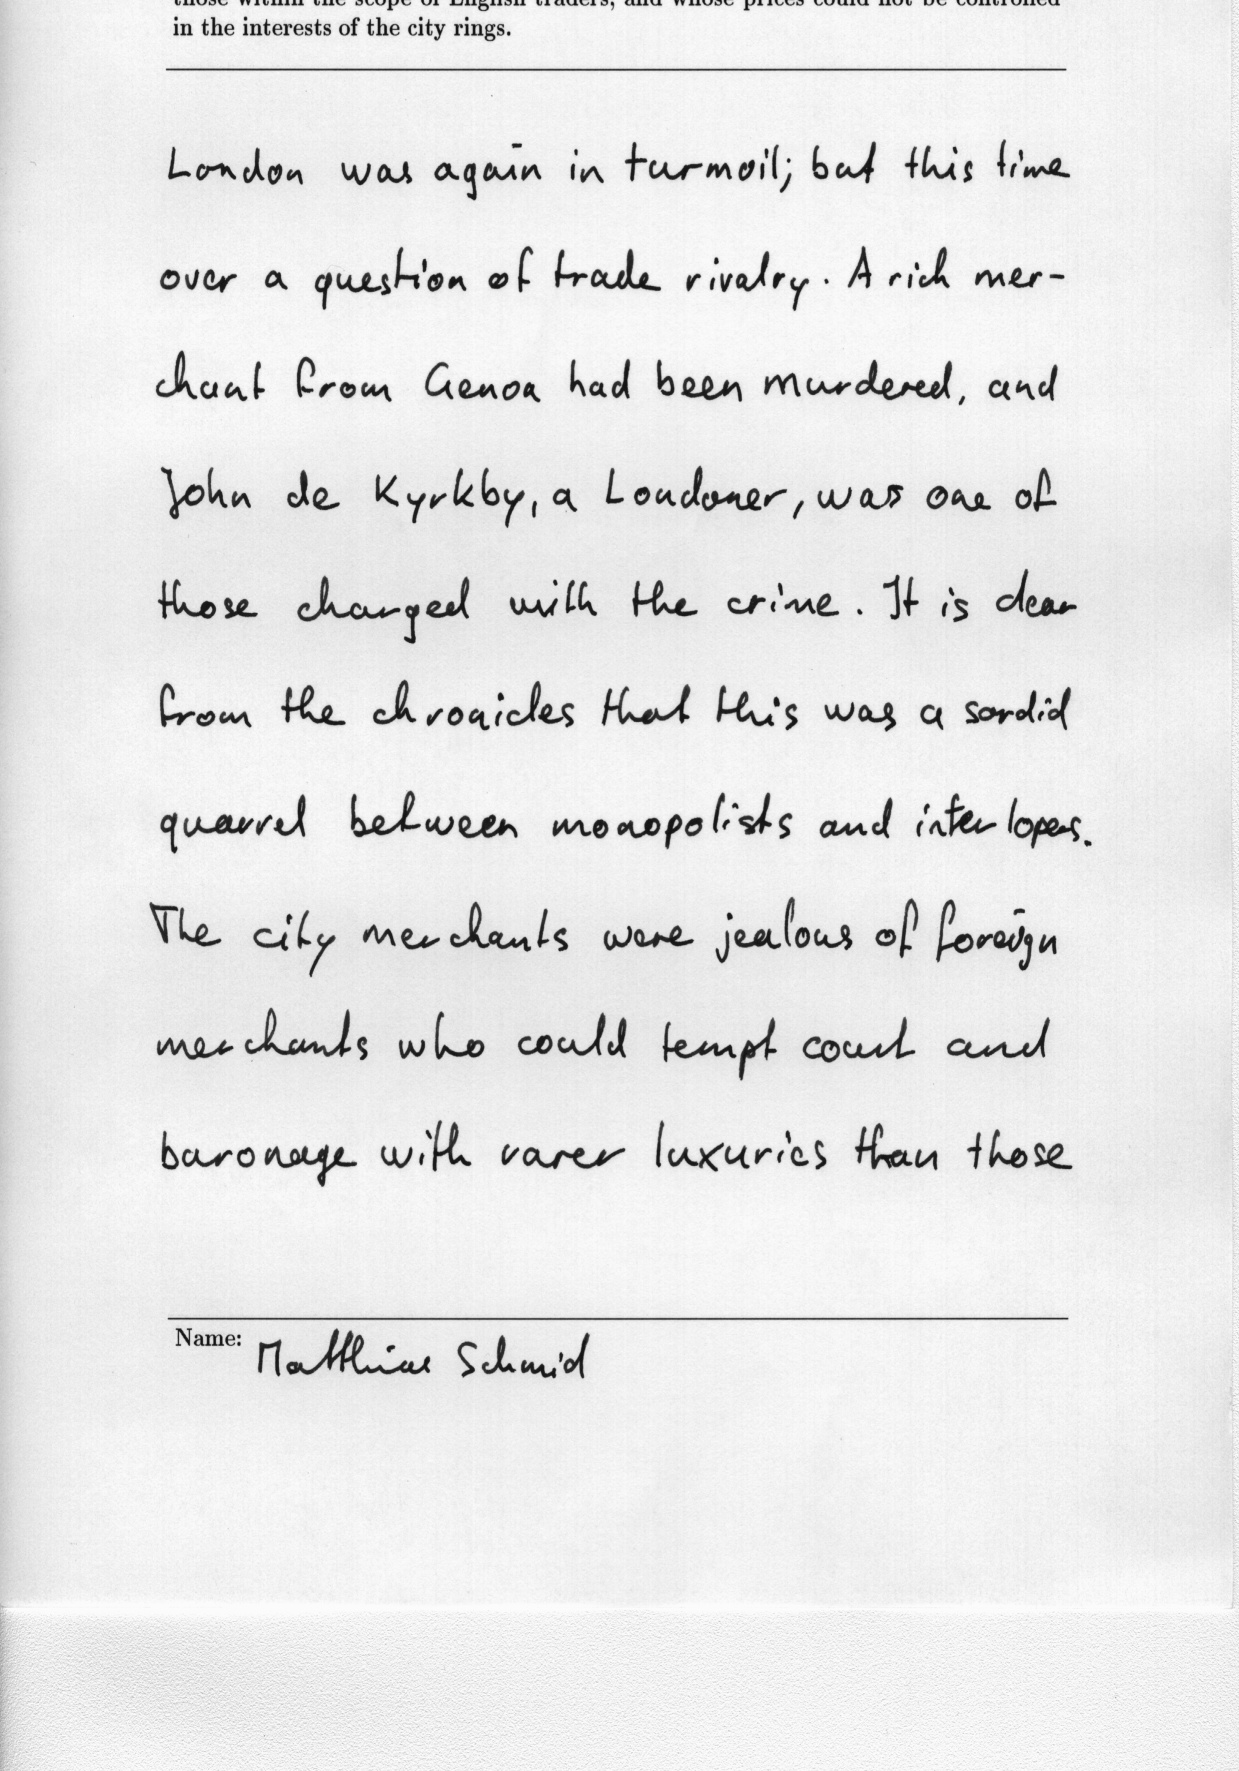 those within the scope of English traders, and whose prices could not be controlled
in the interests of the city rings.
London was again in turmoil; but this time
over a question of trade rivalry. A rich mer-
chant from Genoa had been murdered, and
John de Kyrkby, a Londoner, was one of
those charged with the crime. It is clear
from the chronicles that this was a sordid
quarrel between monopolists and interlopers.
The city merchants were jealous of foreign
merchants who could tempt court and
baronage with rarer luxuries than those
Name: Matthias Schmid